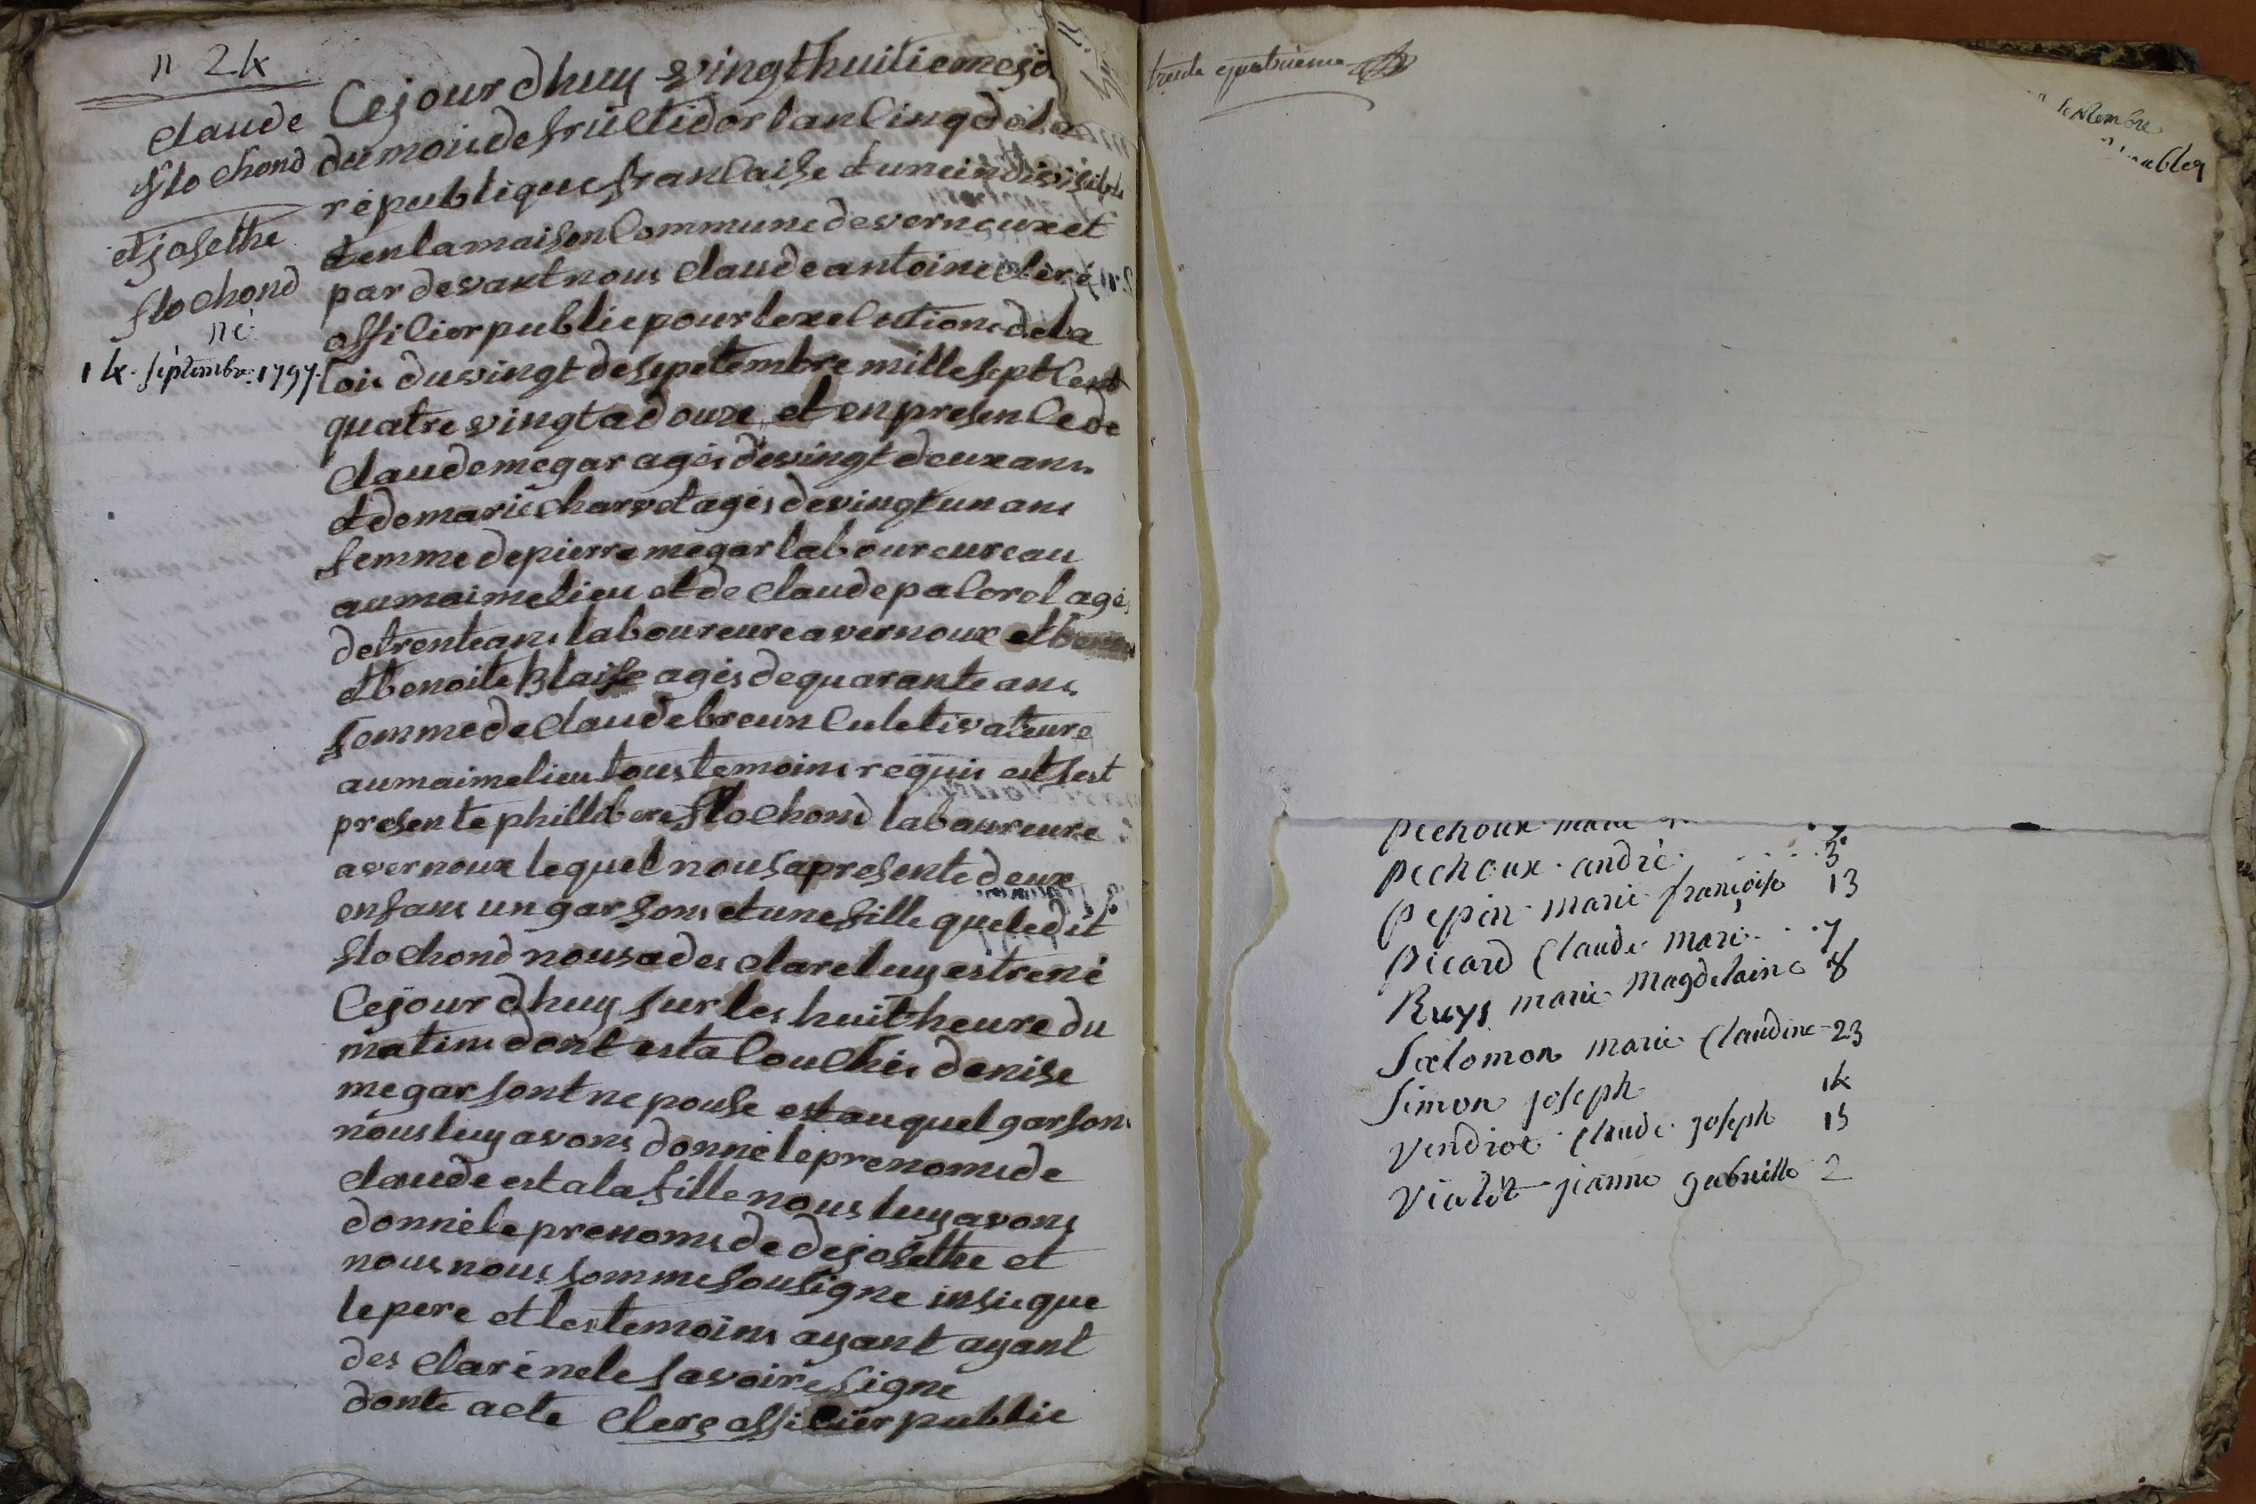 n 24
Claude
flochond
et josethe
flochond
né
14 septembre 1797
Cejourdhuy vingthuitieme jo
du mois de fructidor lan cinq de la
république francaise et une indivisible
et en la maison Commune de verneux et
par devant nous claude antoine clere
officier public pour lexecution de la
loix du vingt de sepetembre mille sept Cent
quatre vingt a douze et en presence de
claude megar agés de vingt deux ans
et de marie charvet agés de vingt un ans
femme de pierre megar laboureure au
au maime lieu et de claude pacorel agés
de trente ans laboureure a vernoux et
et benoite Blaise agés de quarante ans
femme de claude breun culetivateure
au maime lieu tous temoins requis est sest
presente phillibere flochond laboureure
a vernoux lequel nous a presente deux
enfans un garsons et une fille que ledit
flochond nous a des clare luy estre né
Cejour dhuy sur les huit heure du
matins dont est a Couchés denise
megar sont ne pouse est auquel garsons
nous luy avons donné le prenoms de
claude est a la fille nous luy avons
donné le prenoms de de josethe et
nous nous somme sousigne insie que
le pere et les temoins ayant ayant
des claré ne le savoire signe
donte acte Clere officier public
trente quatrieme
septembre
pechoux marie
pechoux andré 3
pepin marie françoise 13
picard Claude marie 7
Ruys marie Magdelaine 8
Salomon marie Claudine 23
Simon joseph 14
Vendiot Claude joseph 15
Vialet jeanne gabrielle 2